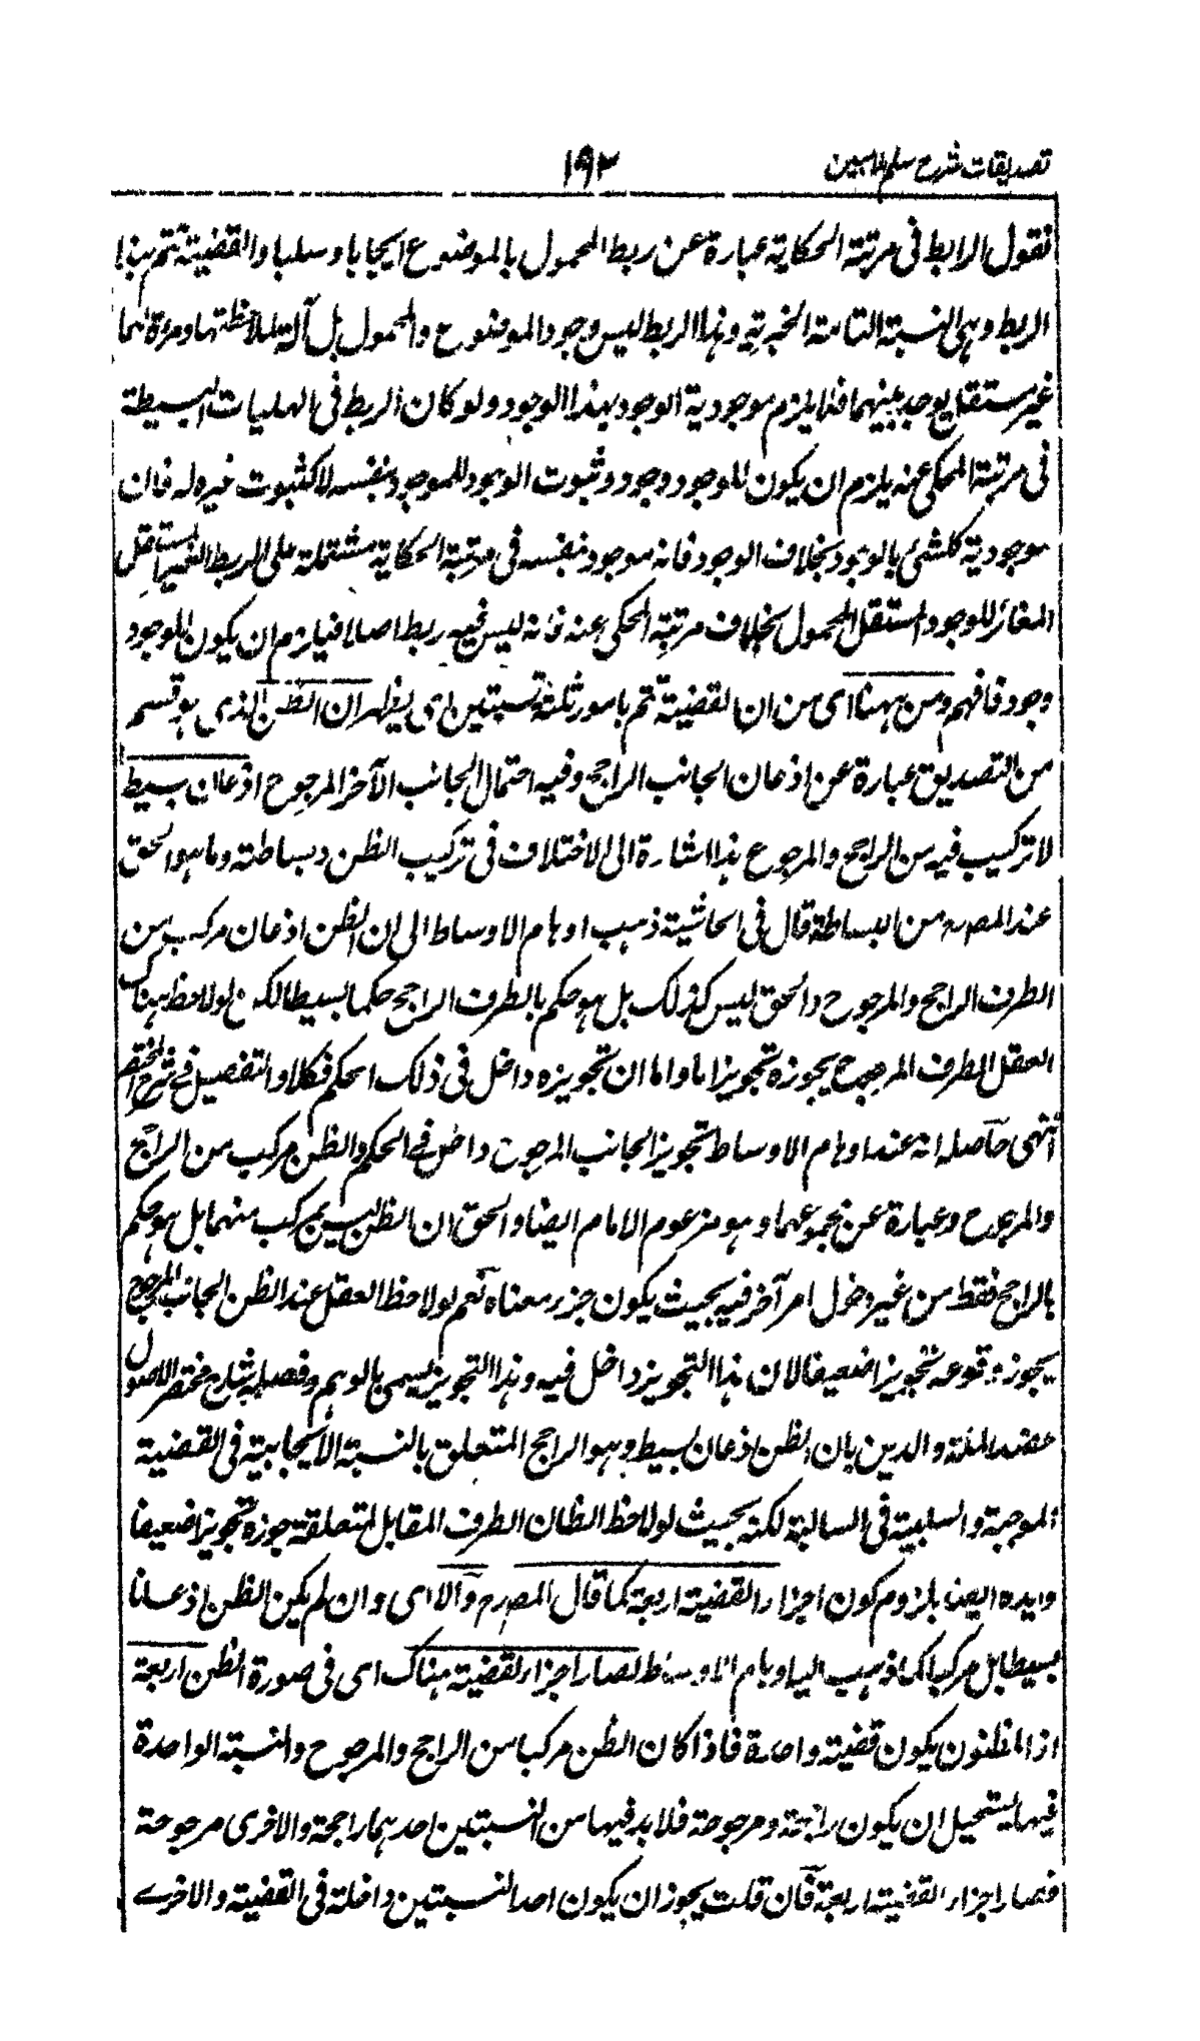 تصدیقات شرح سلم لملا مبین ۱۹۲
فنقول الرابط فی مرتبة الحکایة عبارة عن ربط المحمول بالموضوع ایجابا وسلبا والقضیة تتم بهذا
الربط وهی النسبة التامة الخبریة وهذا الربط لیس وجود الموضوع والمحمول بل آلة لملاحظتهما ومرءة لهما
غیر مستقل یوجد بینهما فلا یلزم موجودیة الوجود بهذا الوجود ولو کان الربط فی الهلیات البسیطة
فی مرتبة المحکی عنه یلزم ان یکون للوجود وجود وثبوت الوجود للموجود بنفسه لا کثبوت غیره له فان
موجودیة کل شیٔ بالوجود بخلاف الوجود فانه موجود بنفسه فی مرتبة الحکایة مشتملة علی الربط الغیر المستقل
المغائر للوجود المستقل المحمول بخلاف مرتبة المحکی عنه فانه لیس فیه ربط اصلا فیلزم ان یکون للوجود
وجود فافهم ومن ههنا ای من ان القضیة تتم بامور ثلثة نسبتین ای یظهر ان الظن الذی هو قسم
من التصدیق عبارة عن اذعان الجانب الراجح وفیه احتمال الجانب الآخر المرجوح اذعان بسیط
لا ترکیب فیه من الراجح والمرجوح هذا اشارة الی الاختلاف فی ترکیب الظن وبساطته وما هو الحق
عند المصـ من البساطة قال فی الحاشیة ذهب اوهام الاوساط الی ان الظن اذعان مرکب من
الطرف الراجح والمرجوح والحق لیس کذلک بل هو حکم بالطرف الراجح حکما بسیطا لکنه لو لاحظ هناک
العقل الطرف المرجوح یجوزه تجویزا ما واما ان تجویزه داخل فی ذلک الحکم فکلا والتفصیل فی شرح المختصر
انتهی حاصله انه عند اوهام الاوساط تجویز الجانب المرجوح داخل فی الحکم والظن مرکب من الراجح
والمرجوح وعبارة عن مجموعهما وهو مزعوم الامام ایضا والحق ان الظن لیس بمرکب منهما بل هو حکم
بالراجح فقط من غیر دخول امر آخر فیه بحیث یکون جزء معناه نعم لو لاحظ العقل عند الظن الجانب المرجوح
یجوز وقوعه تجویزا ضعیفا لا ان هذا التجویز داخل فیه وهذا التجویز یسمی بالوهم وفصله شارح مختصر الاصول
عضد الملة والدین بان الظن اذعان بسیط وهو الراجح المتعلق بالنسبة الایجابیة فی القضیة
الموجبة والسلبیة فی السالبة لکنه بحیث لو لاحظ الظان الطرف المقابل لمتعلقه جوزه تجویزا ضعیفا
وایده ایضا بلزوم کون اجزاء القضیة اربعة کما قال المصـ والا ای وان لم یکن الظن اذعانا
بسیطا بل مرکبا کما ذهب الیه اوهام الاوساط لصار اجزاء القضیة هناک ای فی صورة الظن اربعة
اذ المظنون یکون قضیة واحدة فاذا کان الظن مرکبا من الراجح والمرجوح والنسبة الواحدة
فیها یستحیل ان یکون راجحة ومرجوحة فلا بد فیها من النسبتین احدهما راجحة والاخری مرجوحة
فصار اجزاء القضیة اربعة فان قلت یجوز ان یکون احد النسبتین داخلة فی القضیة والاخری